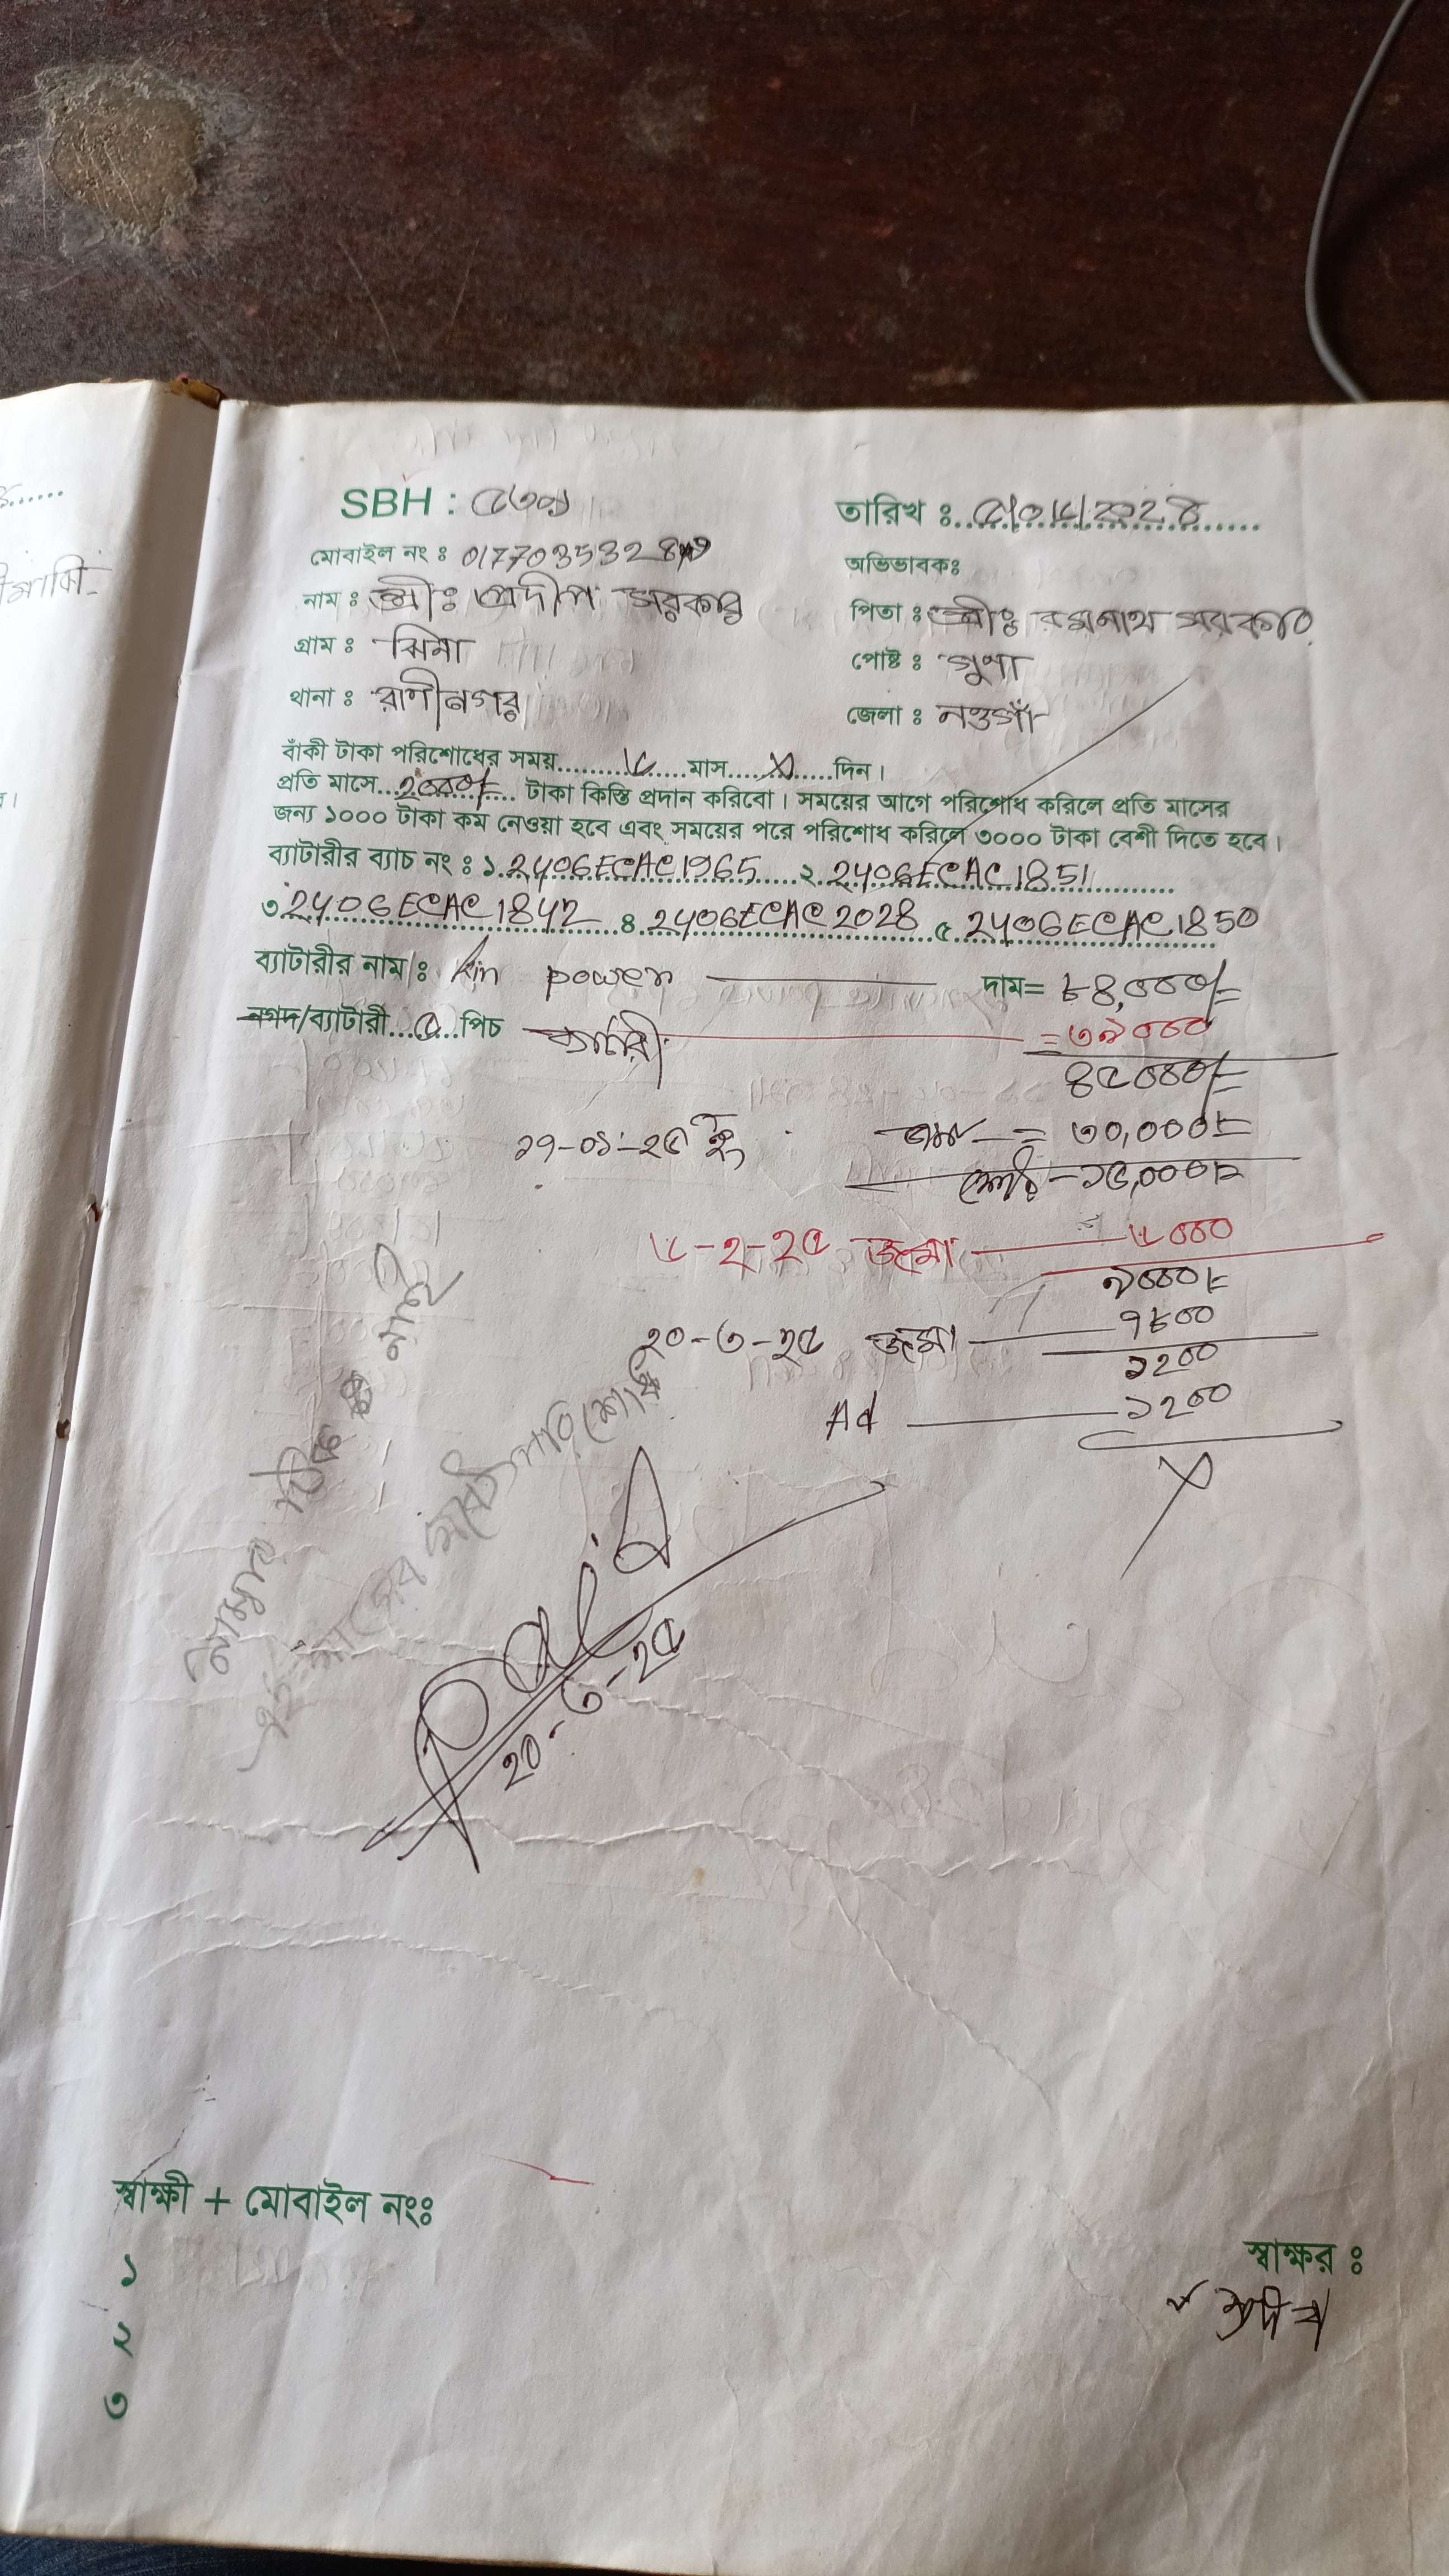 SBH : ৫৩০১
তারিখ ঃ ৫/০৬/২০২৪
মোবাইল নং ঃ 017703532
অভিভাবকঃ
নাম ঃ শ্রীঃ প্রদীপ সরকার
পিতা ঃ শ্রীঃ রমনাথ সরকার
গ্রাম ঃ ঝিনা
পোষ্ট ঃ গুনা
থানা ঃ রাণীনগর
জেলা ঃ নওগাঁ
বাঁকী টাকা পরিশোধের সময়..........৬......মাস.....X.....দিন।
প্রতি মাসে...2000/=... টাকা কিস্তি প্রদান করিবো। সময়ের আগে পরিশোধ করিলে প্রতি মাসের
জন্য ১০০০ টাকা কম নেওয়া হবে এবং সময়ের পরে পরিশোধ করিলে ৩০০০ টাকা বেশী দিতে হবে।
ব্যাটারীর ব্যাচ নং ঃ ১.2406ECAC1965.....২.2406ECAC1851
৩.2406ECAC1842...৪.2406ECAC2028..৫.2406ECAC1850
ব্যাটারীর নাম ঃ Rin power দাম= ৮৪,০০০/=
নগদ/ব্যাটারী...৫...পিচ = ৩৯০০০
৪৫০০০/=
২৭-০১-২৫ ইং জমা = ৩০,০০০/=
১৫,০০০/=
৬-২-২৫ জমা ৬০০০
৯০০০/=
২০-৩-২৫ জমা ৭৮০০
১২০০
Ad ১২০০
X
নাম্বার ঠিক নাই
পরিশোধ
Paid
২০-৩-২৫
স্বাক্ষী + মোবাইল নংঃ
১
২
৩
স্বাক্ষর ঃ